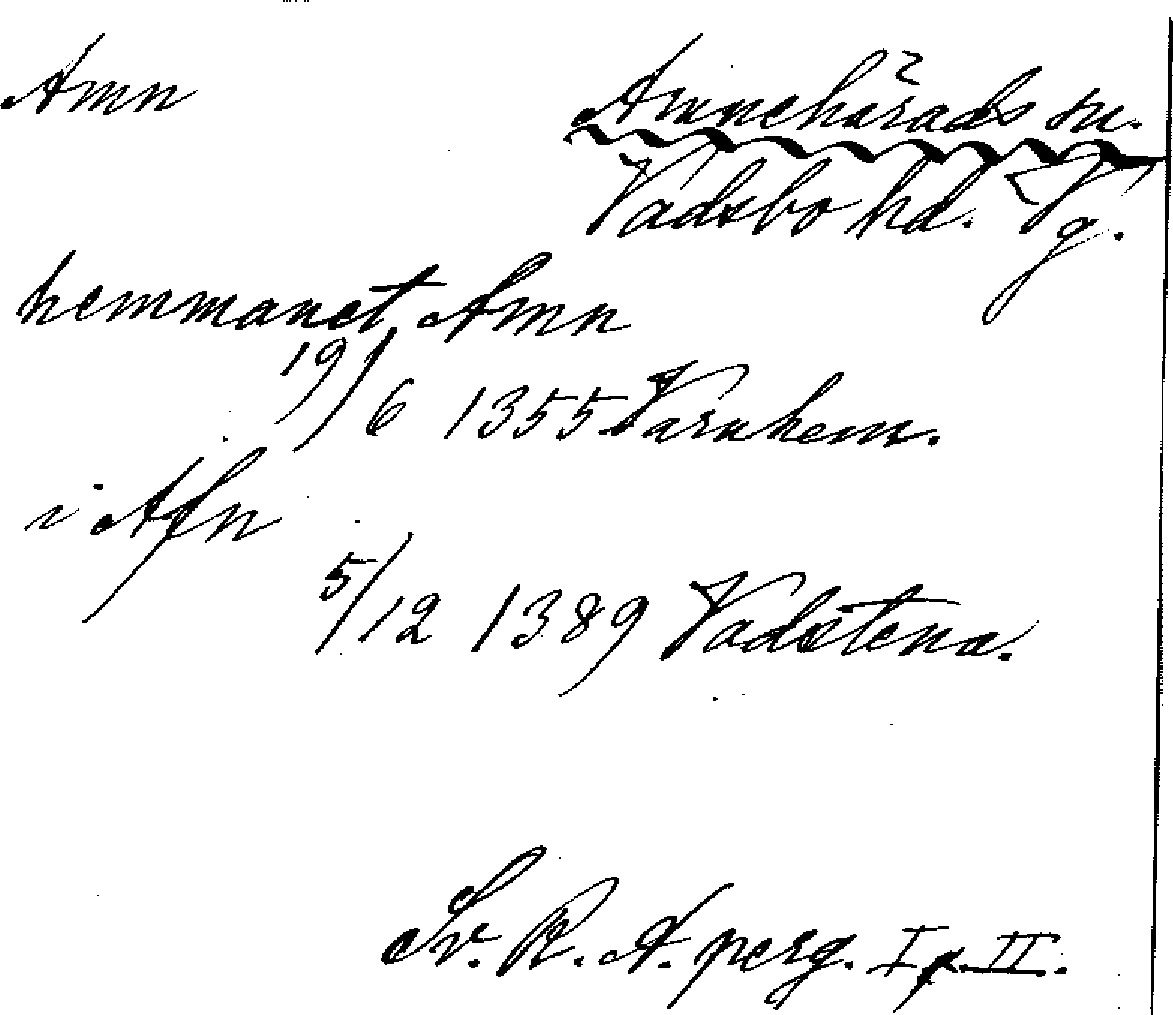 Amn
Amnehärads sn.
Vadsbo hd. Vg.
hemmanet Amn
19/6 1355 Varnhem.
i Afn
5/12 1389 Vadstena.
Sv. R. A. perg. I, II.